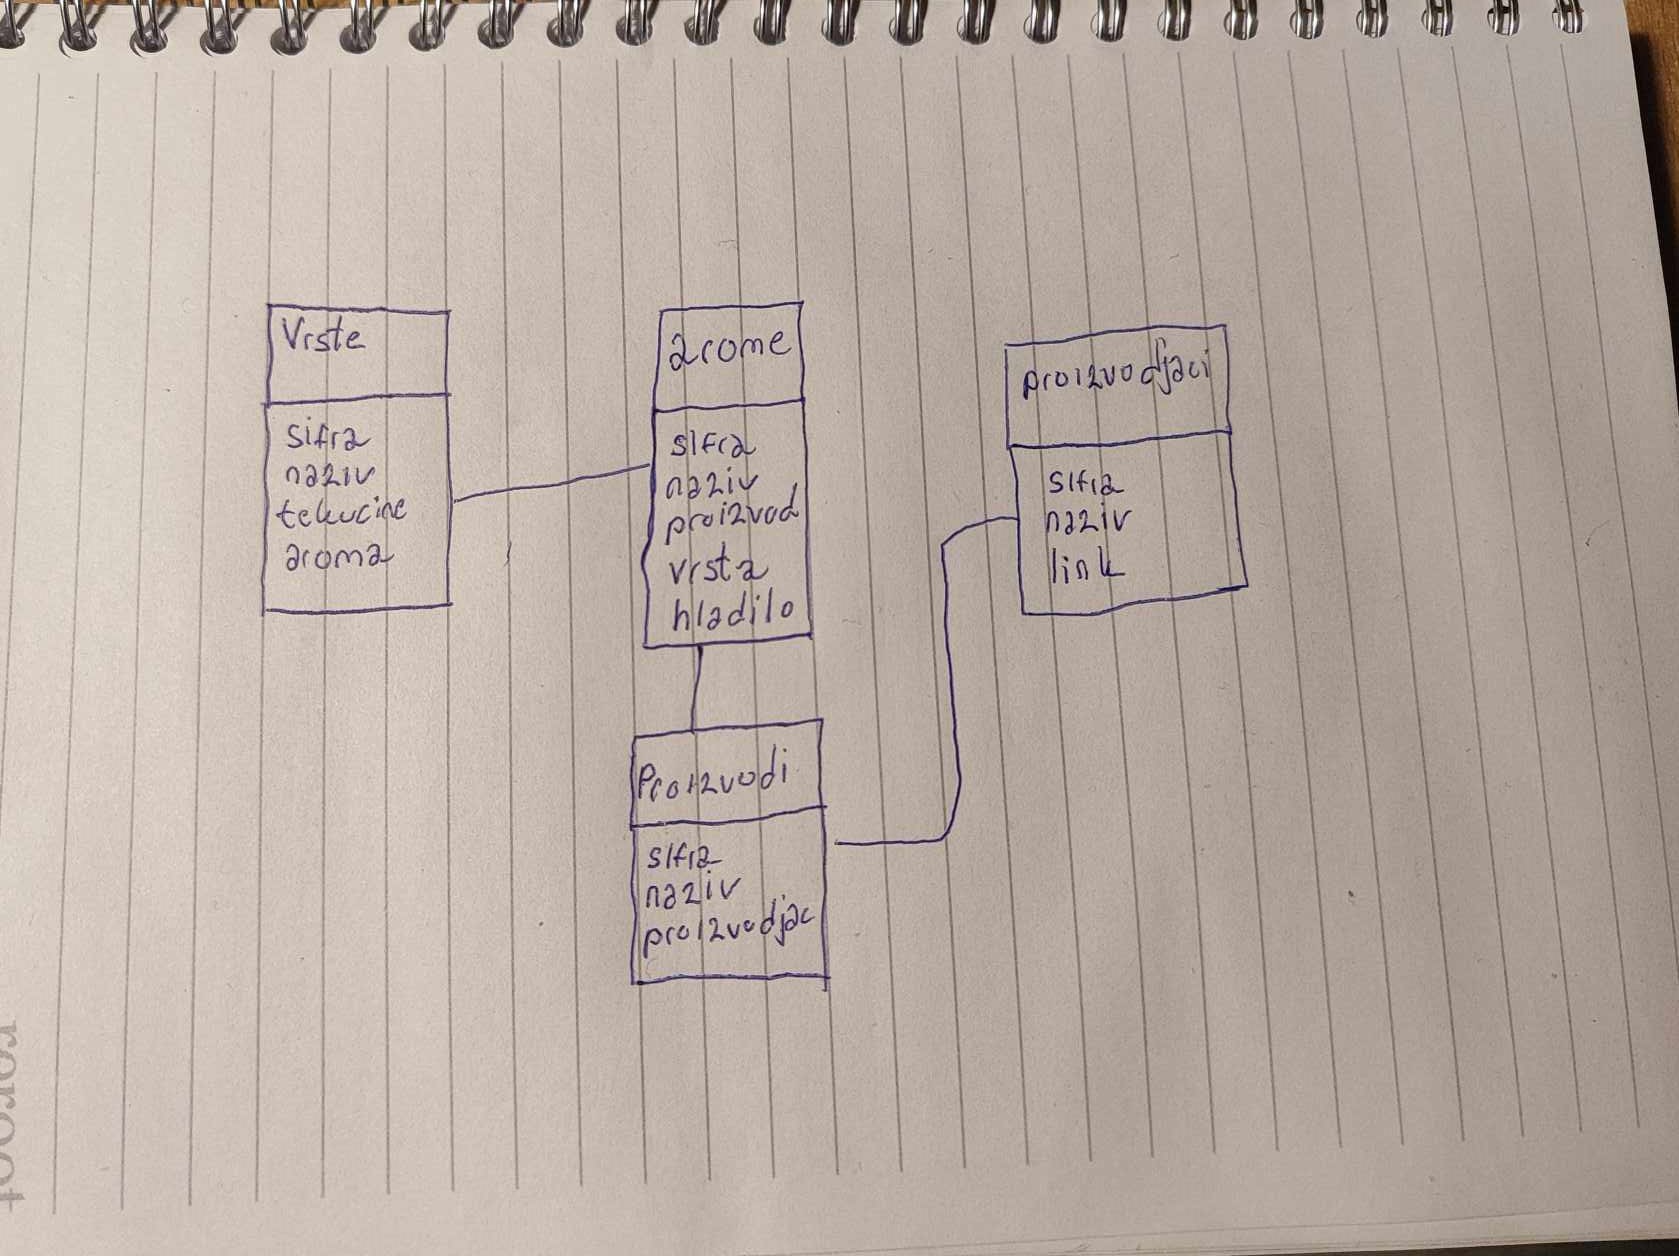 Vrste
sifra
naziv
tekucine
aroma
arome
sifra
naziv
proizvod
vrsta
hladilo
proizvodjaci
sifra
naziv
link
Proizvodi
sifra
naziv
proizvodjac